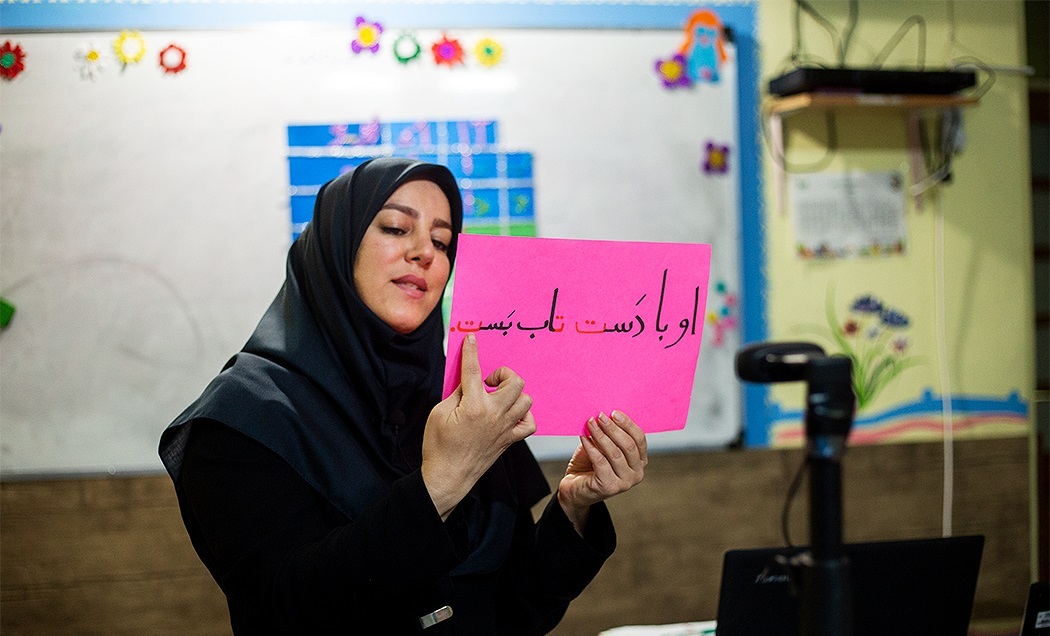 او با دَست تاب بَست.